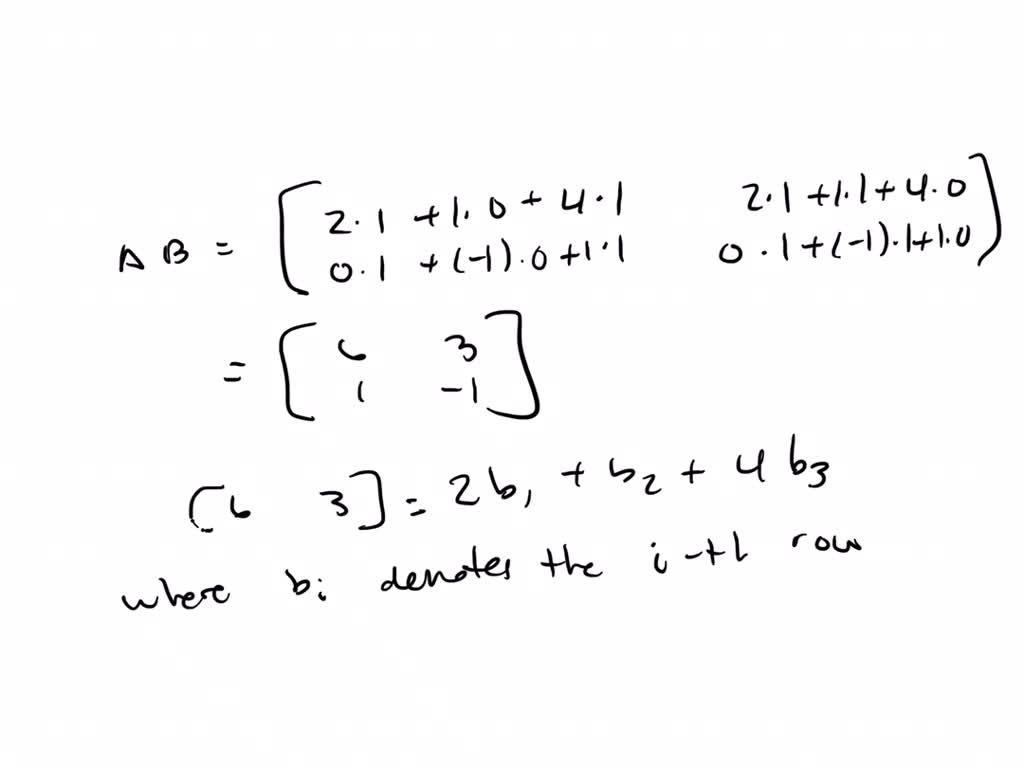 AB = [ 2·1 + 1·0 + 4·1 2·1 + 1·1 + 4·0
0·1 + (-1)·0 + 1·1 0·1 + (-1)·1 + 1·0 ]
= [ 6 3
1 -1 ]
[6 3] = 2b₁ + b₂ + 4b₃
where bᵢ denotes the i-th row